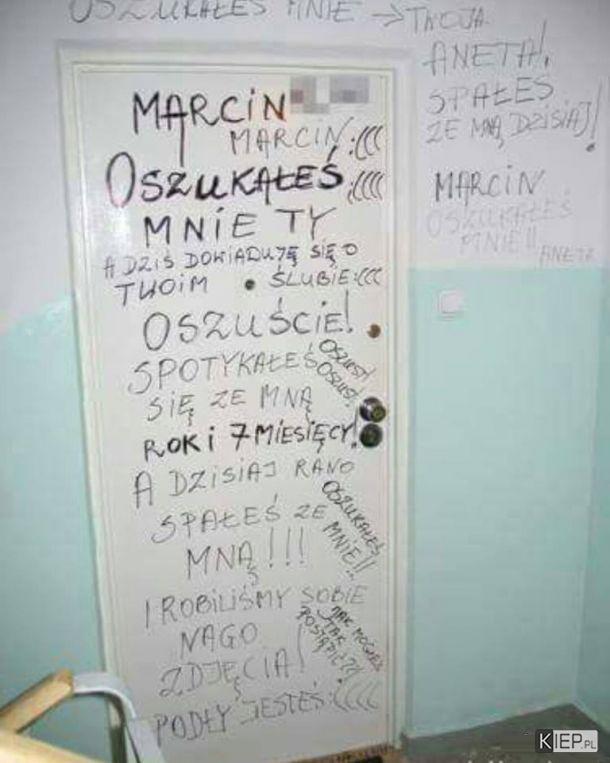 OSZUKAŁEŚ MNIE → TWOJA
ANETA!
SPAŁEŚ
ZE MNĄ DZISIAJ!
MARCIN
OSZUKAŁEŚ
MNIE!!
ANETA
MĄRCIN
MARCIN:(((
OSZUKĄŁEŚ:((((
MNIE TY
A DZIŚ DOWIADUJĘ SIĘ O
TWOIM ŚLUBIE:(((
OSZUŚCIE!
SPOTYKAŁEŚ
SIĘ ZE MNĄ
OSZUST!
OSZUST!
ROK I 7 MIESIĘCY!
A DZISIAJ RANO
SPAŁEŚ ZE
MNĄ!!!
OSZUKAŁEŚ
MNIE!!
I ROBILIŚMY SOBIE
NAGO
ZDJĘCIA!
JAK MOGŁEŚ
TAK
POSTĄPIĆ?!
PODŁY JESTEŚ:((((
KIEP.PL